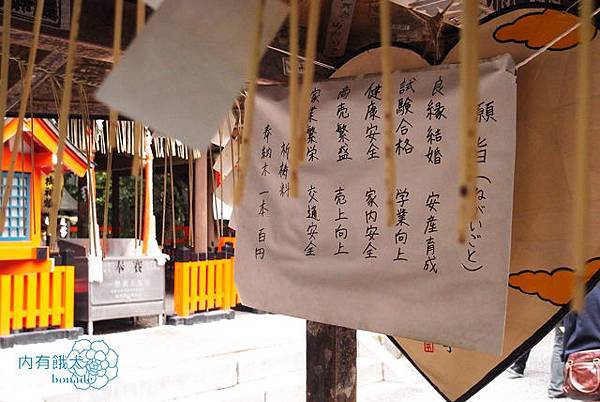 願旨(ねがいごと)
良縁結婚 安産育成
試験合格 学業向上
健康安全 家内安全
商売繁盛 売上向上
家業繁栄 交通安全
祈祷料
奉納木 一本 百円
奉
内有餓犬
bonade